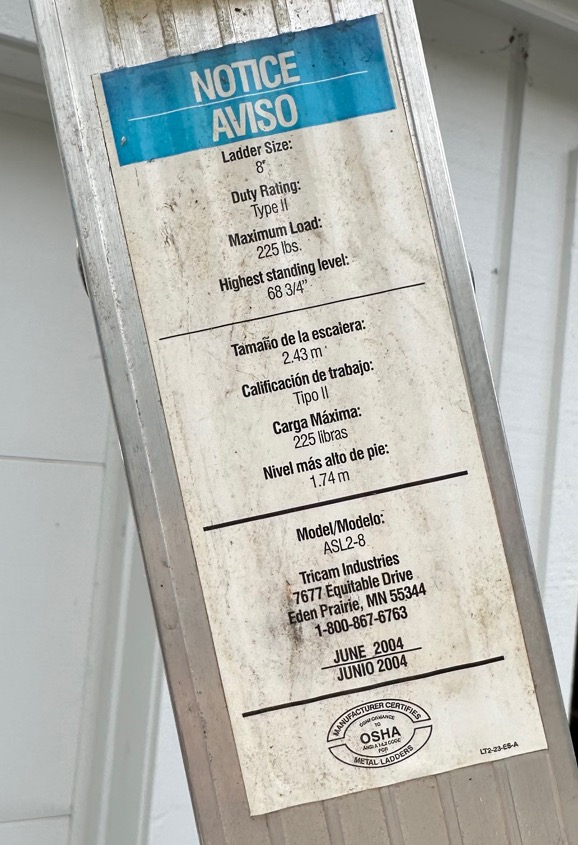 NOTICE
AVISO
Ladder Size:
8'
Duty Rating:
Type II
Maximum Load:
225 lbs.
Highest standing level:
68 3/4"
Tamaño de la escalera:
2.43 m
Calificación de trabajo:
Tipo II
Carga Máxima:
225 libras
Nivel más alto de pie:
1.74 m
Model/Modelo:
ASL2-8
Tricam Industries
7677 Equitable Drive
Eden Prairie, MN 55344
1-800-867-6763
JUNE 2004
JUNIO 2004
MANUFACTURER CERTIFIES
CONFORMANCE
TO
OSHA
CODE
FOR
METAL LADDERS
LT2-23-ES-A